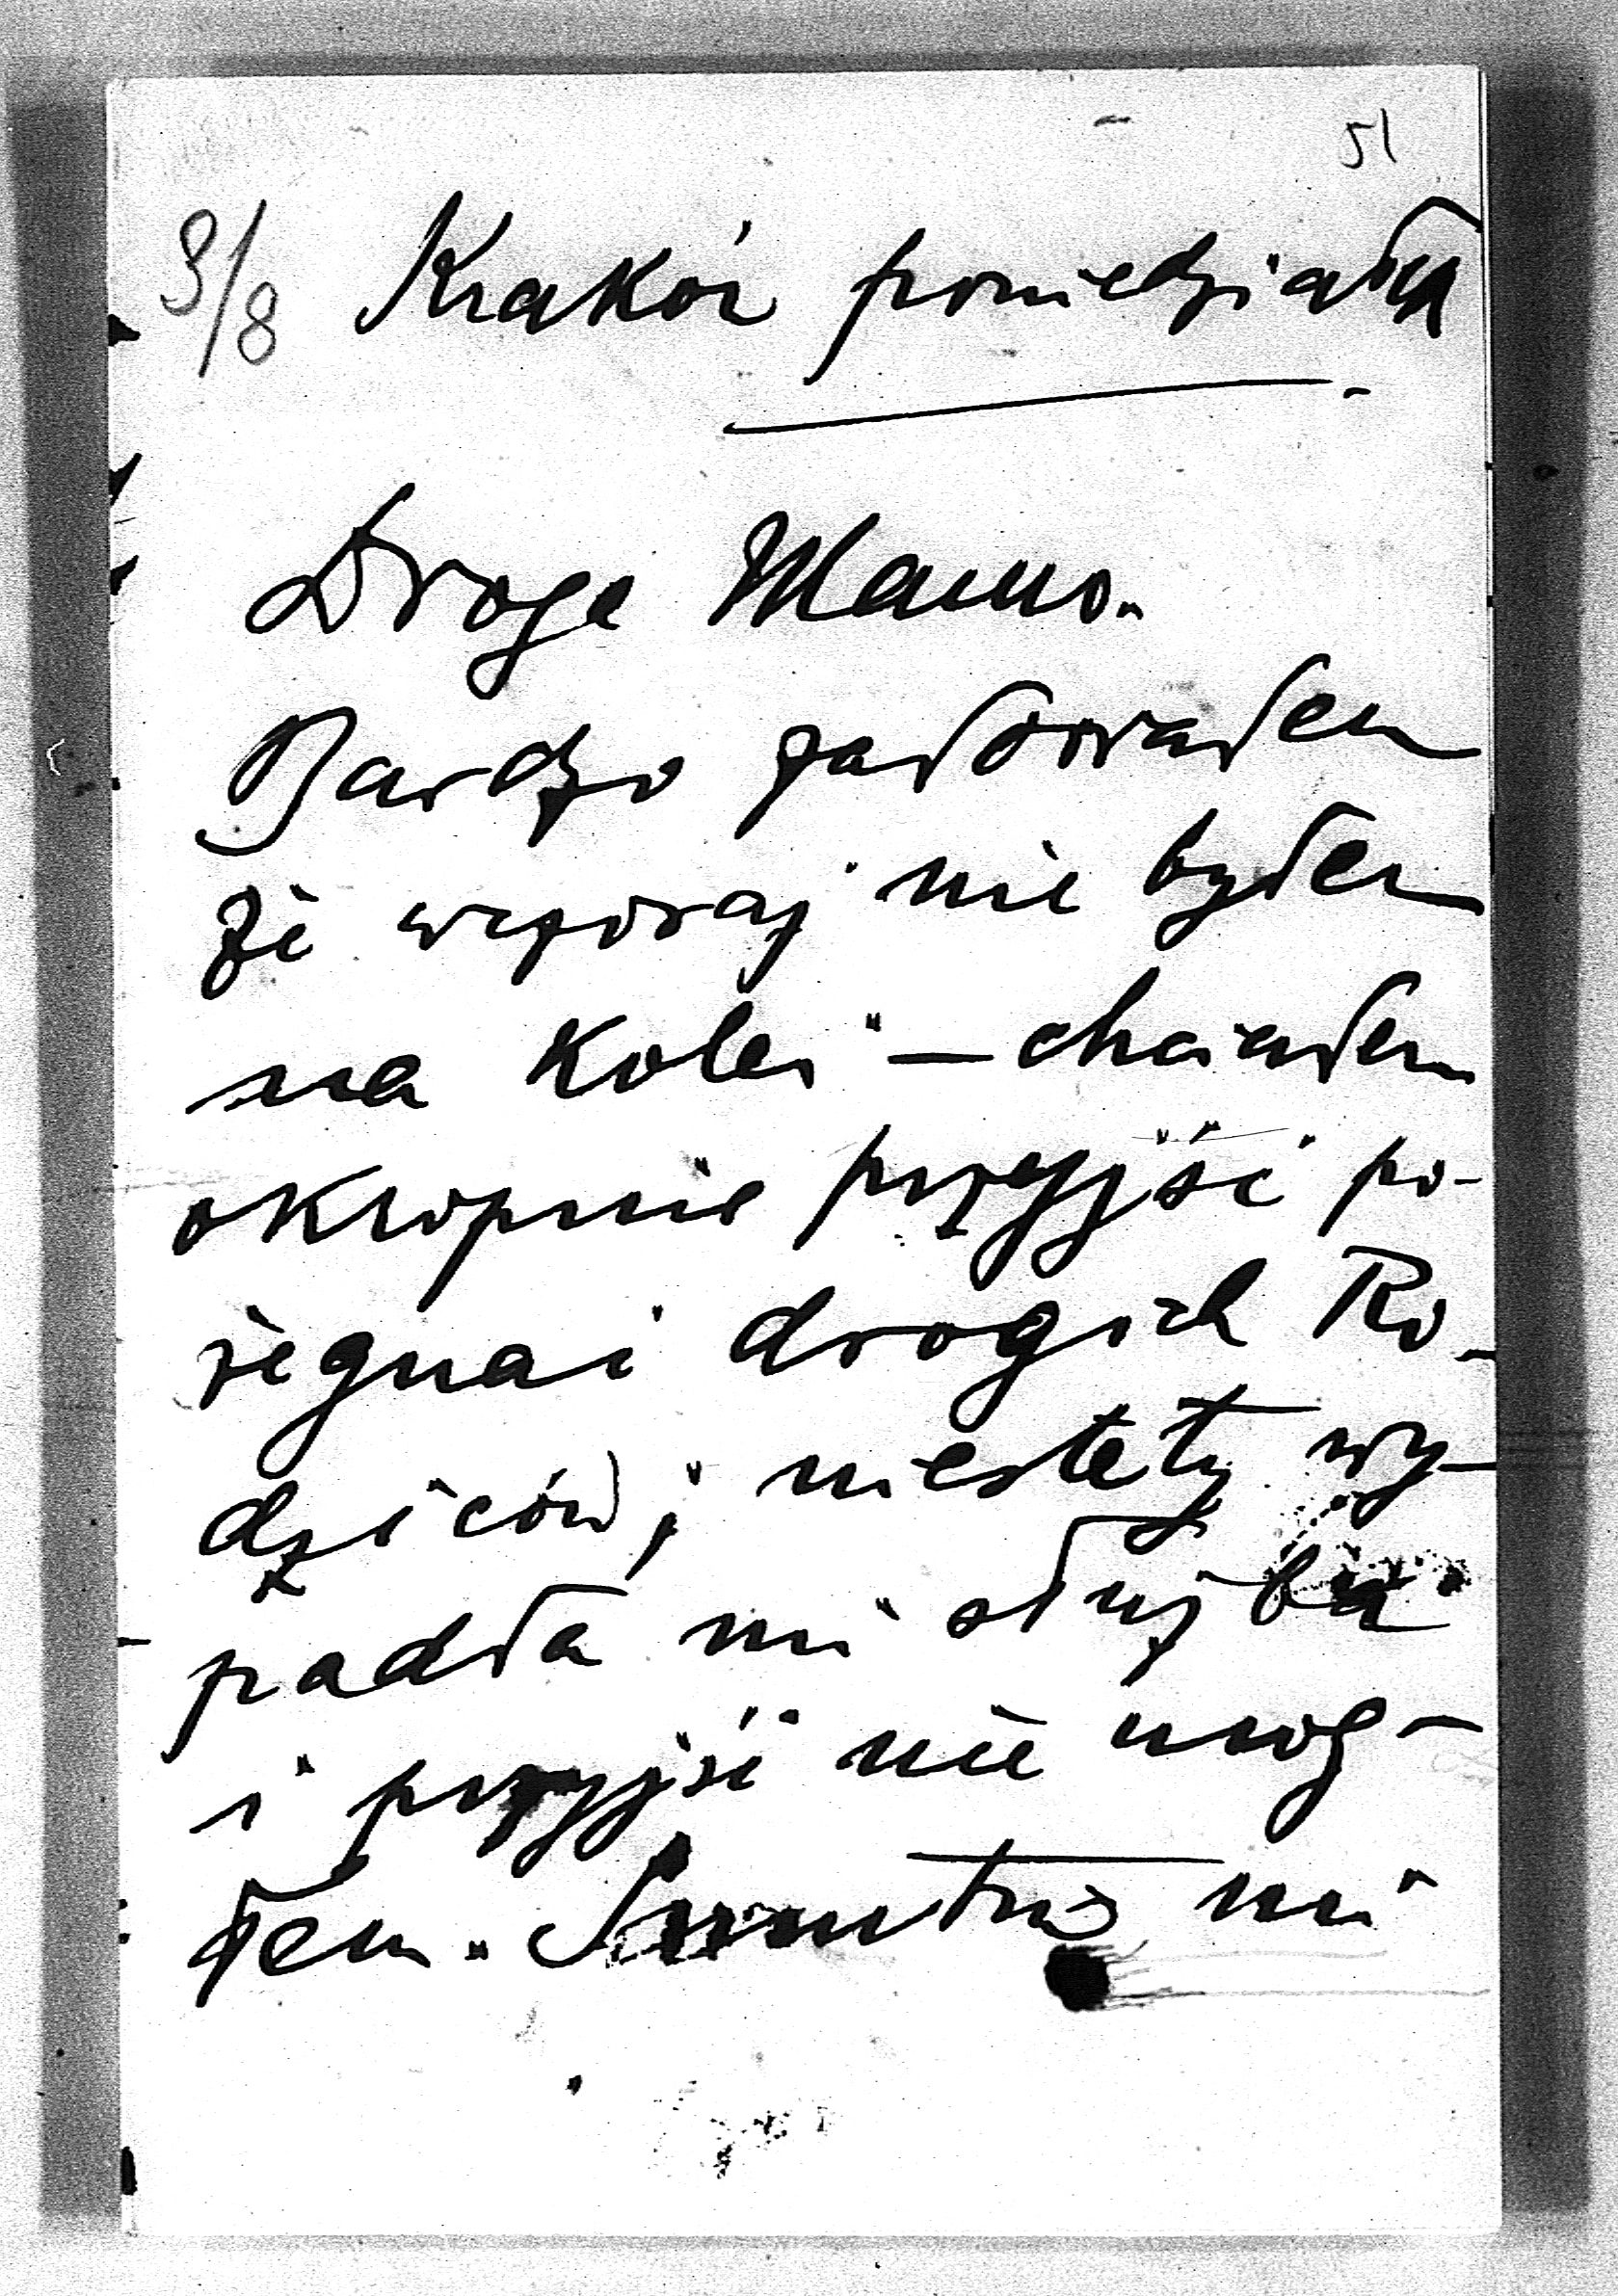 51
9/8 Kraków poniedziałek
Droga Mamo.
Bardzo żałowałem
że wczoraj nie byłem
na Kolei – chciałem
okropnie przyjść po-
żegnać drogich Ro-
dziców, niestety wy-
padła mi służba
i przyjść nie mog-
łem. Smutno mi